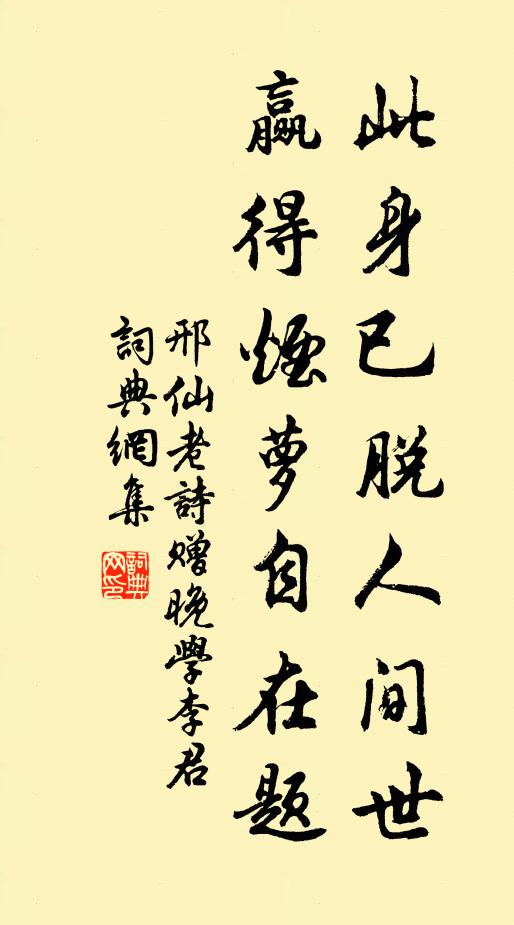 此身已脱人间世
赢得煙萝自在题
邢仙老詩赠晚學李君
詞典網集
詞典
网印